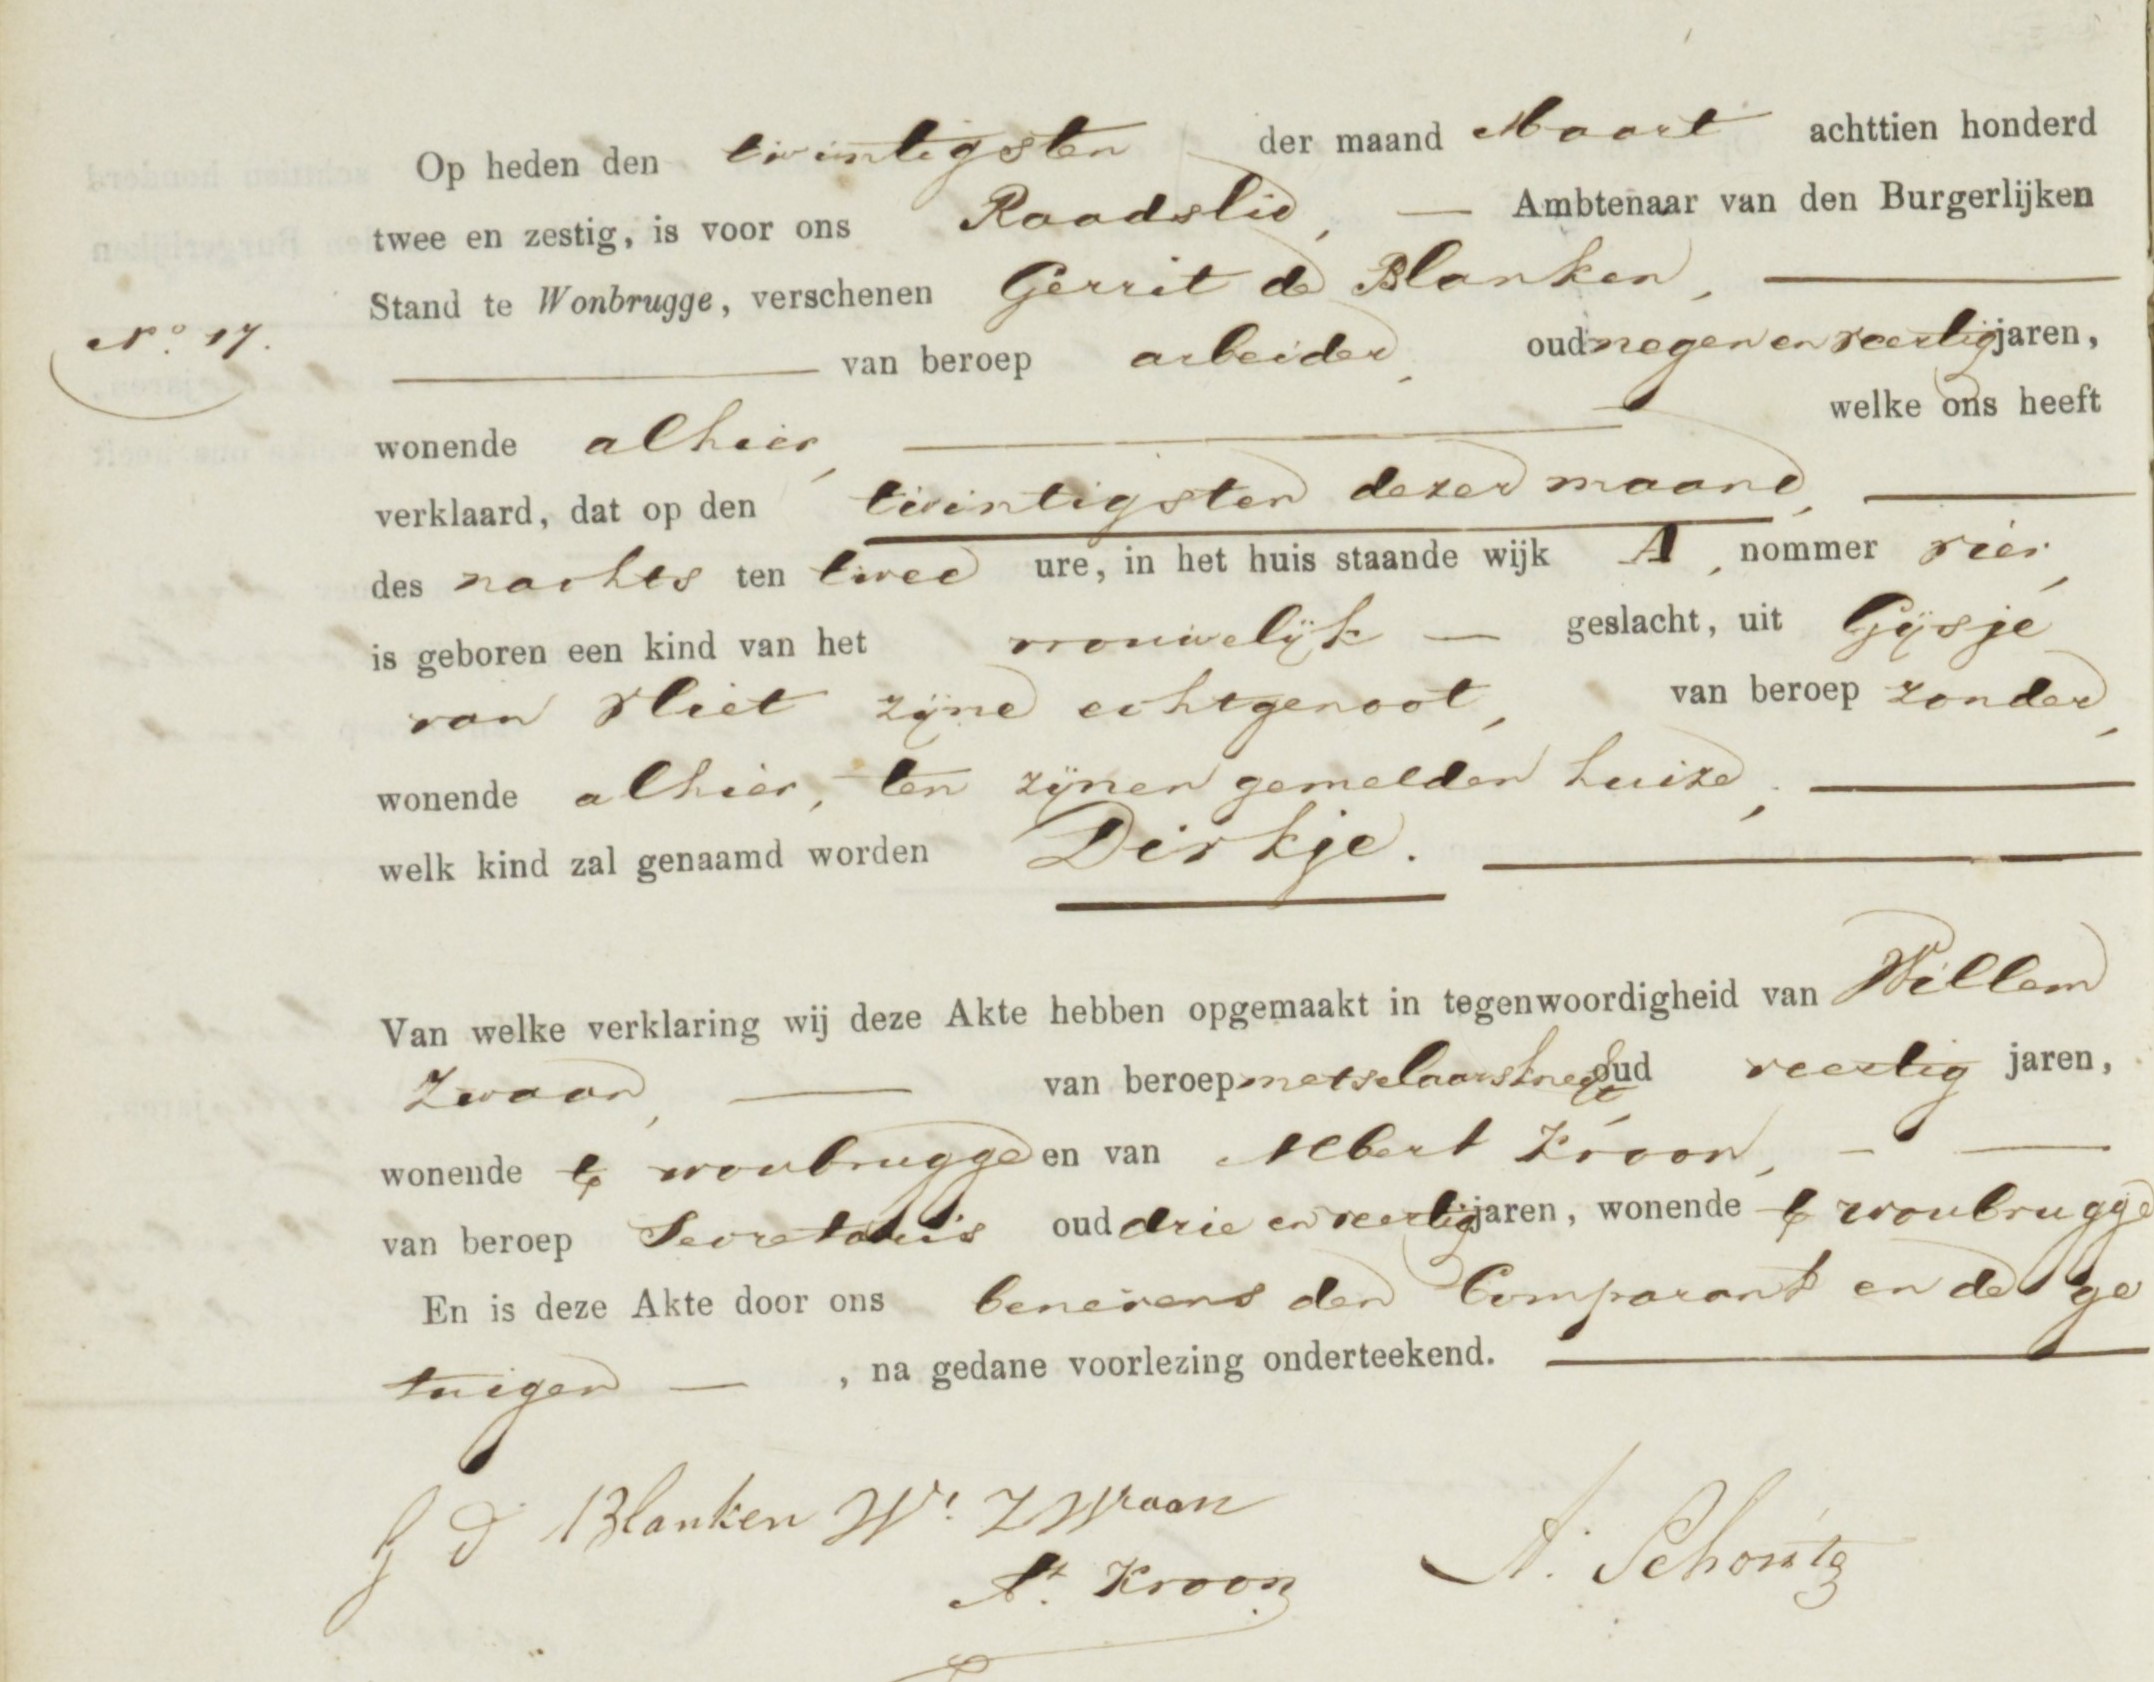 Op heden den twintigsten der maand Maart achttien honderd
twee en zestig, is voor ons Raadslid, — Ambtenaar van den Burgerlijken
Stand te Wonbrugge, verschenen Gerrit de Blanken, —
No. 17.
— van beroep arbeider, oud negen en veertig jaren,
wonende alhier, — welke ons heeft
verklaard, dat op den twintigsten dezer maand, —
des nachts ten twee ure, in het huis staande wijk A, nommer vier,
is geboren een kind van het vrouwelijk — geslacht, uit Gijsje
van Vliet zijne echtgenoot, van beroep zonder,
wonende alhier, ten zijnen gemelden huize, —
welk kind zal genaamd worden Dirkje. —
Van welke verklaring wij deze Akte hebben opgemaakt in tegenwoordigheid van Willem
Zwaan, — van beroep metselaarsknegt oud veertig jaren,
wonende te woubrugge en van Albert Kroon, — —
van beroep Secretaris oud drie en veertig jaren, wonende te woubrugge
En is deze Akte door ons benevens den Comparant en de ge
tuigen — , na gedane voorlezing onderteekend. —
G d Blanken Wm Zwaan
At. Kroon
A. Schoutz